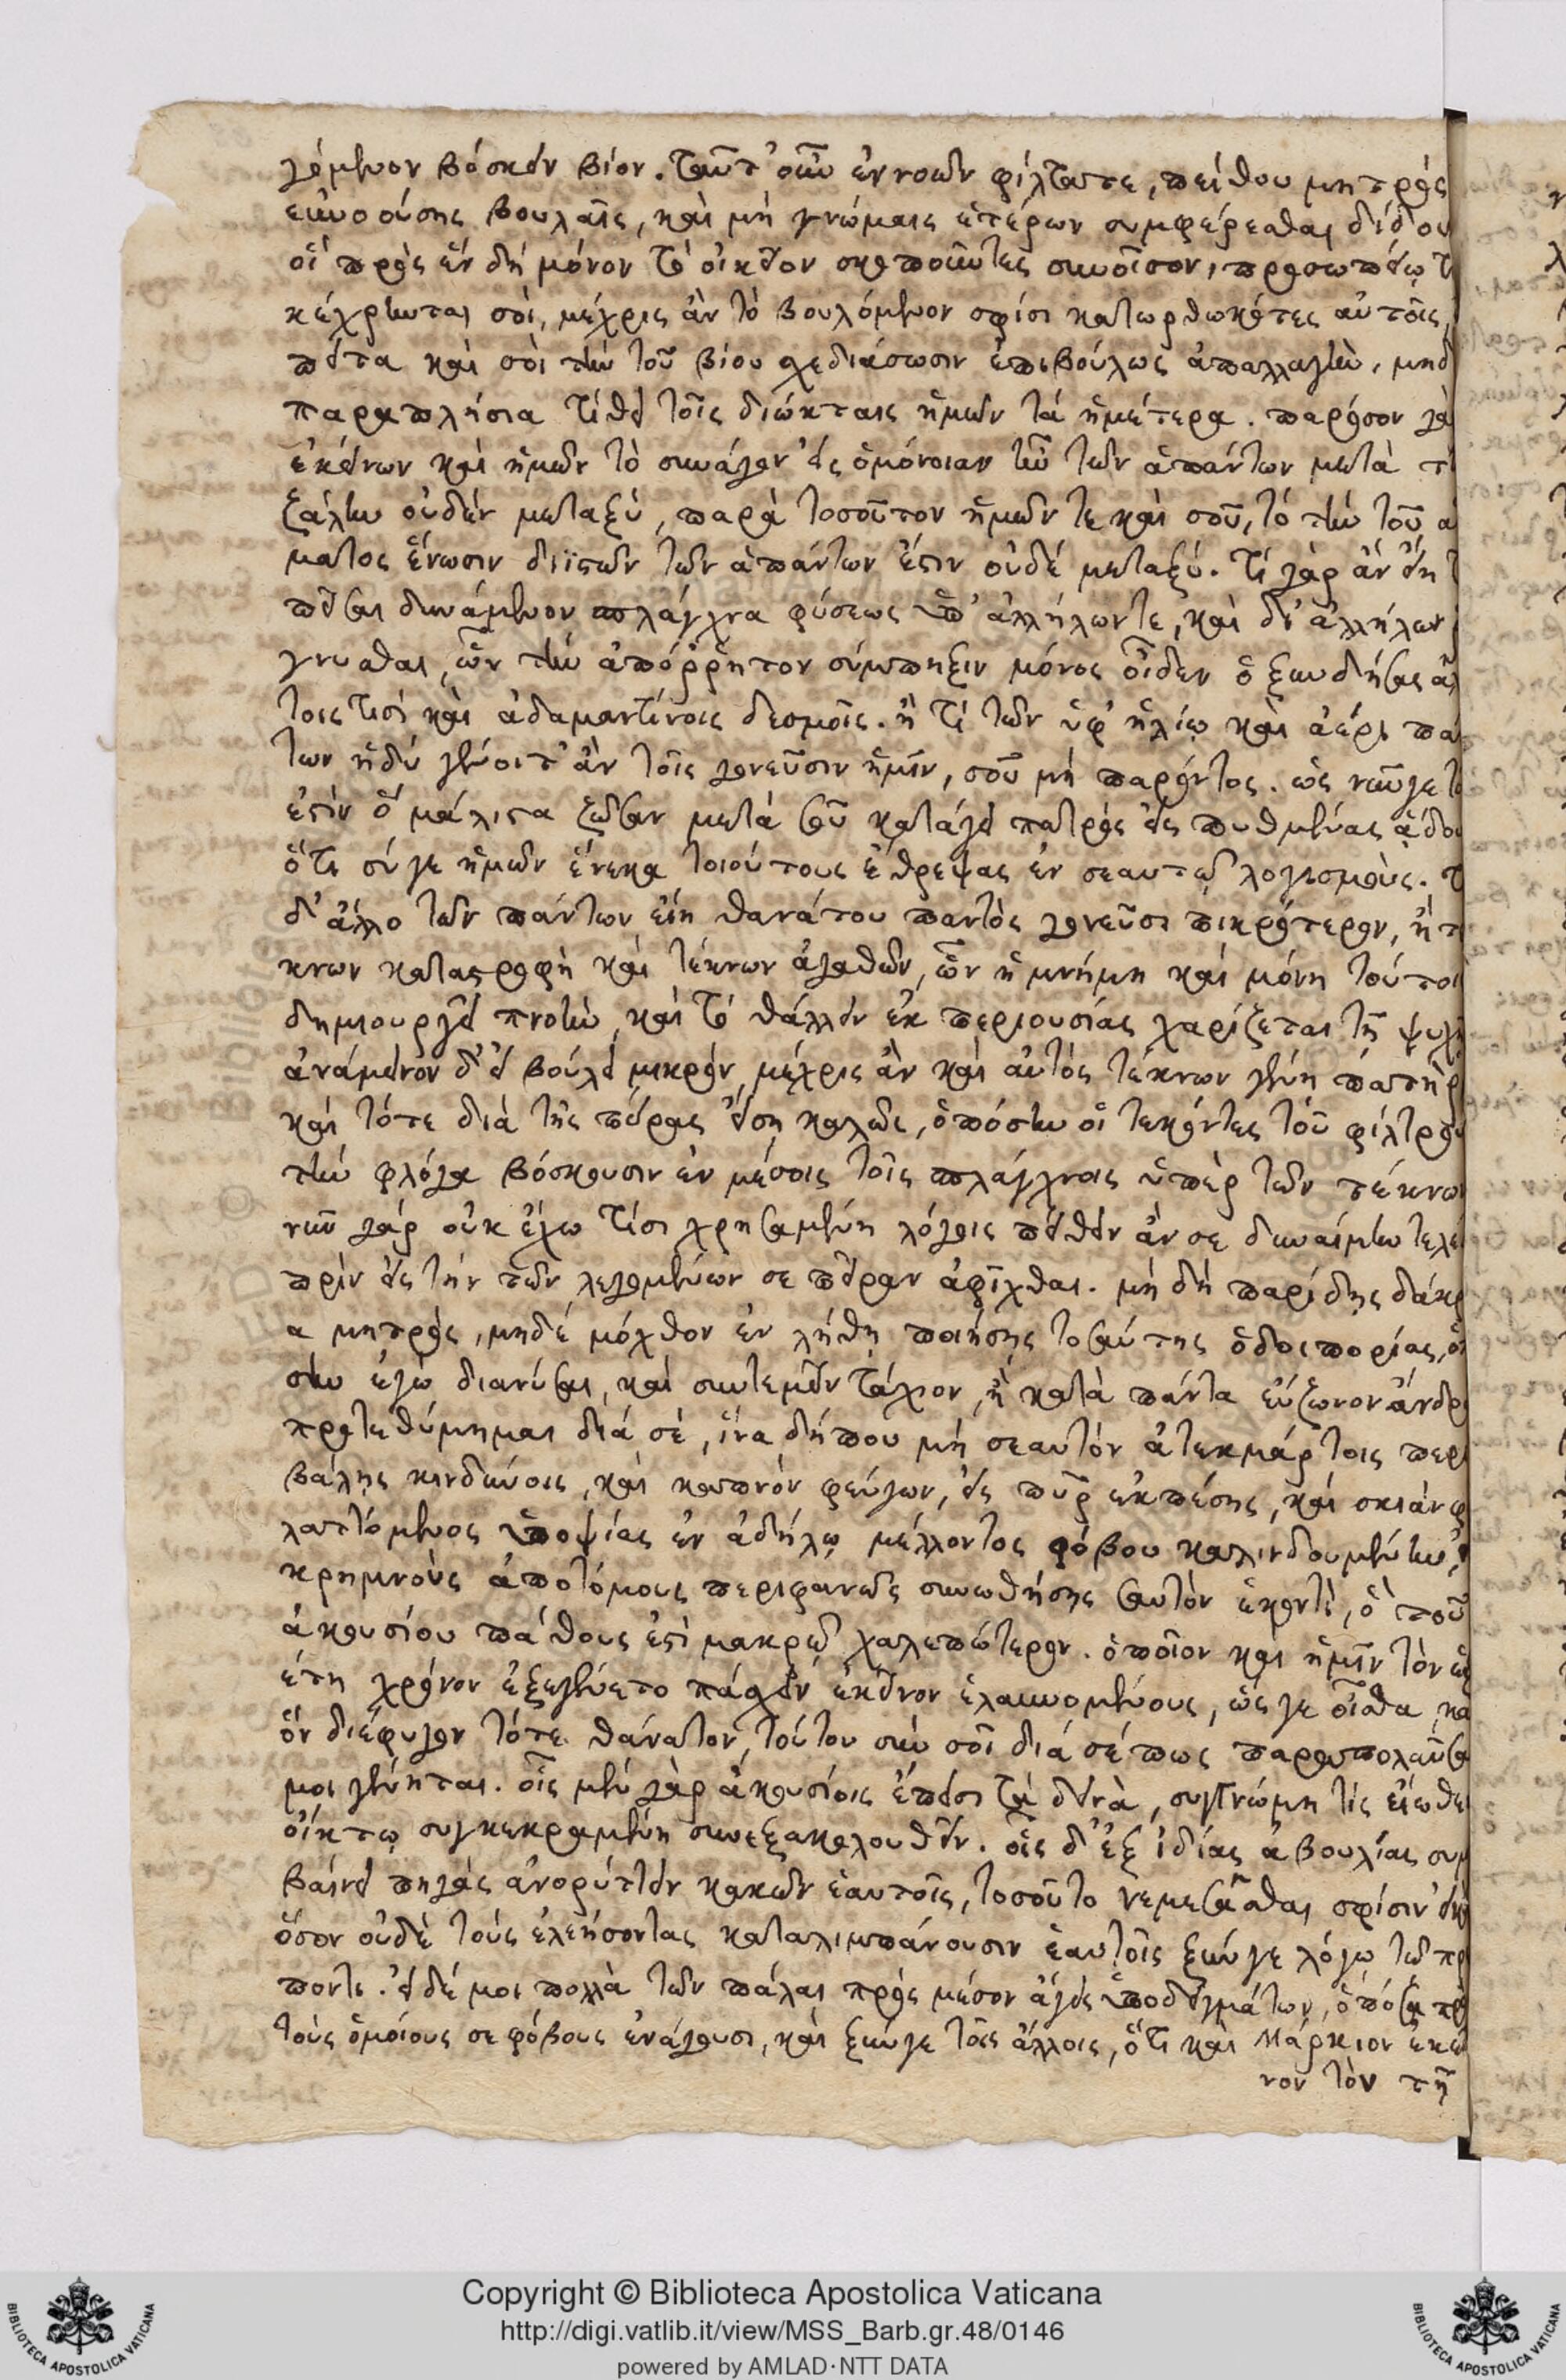 γόμενον βόσκειν βίον. ταῦτ' οὖν ἐννοῶν φίλτατε, πείθου μητρὸς
εὐνοούσης βουλαῖς, καὶ μὴ γνώμαις ἑτέρων συμφέρεσθαι δίδου
οἳ πρὸς ἓν δὴ μόνον τὸ οἰκεῖον σκοποῦντες συνοῖσον, προσωπείῳ
κέχρηνται σοὶ, μέχρις ἂν τὸ βουλόμενον σφίσι κατωρθωκότες αὐτοῖς,
πειτα καὶ σοὶ τὴν τοῦ βίου σχεδιάσωσιν ἐπιβούλως ἀπαλλαγὴν. μηδ
παραπλήσια τίθει τοῖς διώκταις ἡμῶν τὰ ἡμέτερα. παρόσον γὰ
ἐκείνων καὶ ἡμῶν τὸ συνάγον εἰς ὁμόνοιαν ἦν τῶν ἁπάντων μετὰ τ
ζάλην οὐδὲν μεταξὺ, παρὰ τοσοῦτον ἡμῶν τε καὶ σοῦ, τὸ τὴν τοῦ α
ματος ἕνωσιν διϊστῶν τῶν ἁπάντων ἐστὶν οὐδὲ μεταξύ. τί γὰρ ἂν εἴη
πεῖσαι δυνάμενον σπλάγχνα φύσεως ὑπ' ἀλλήλων τε, καὶ δι' ἀλλήλων
γνυσθαι, ὧν τὴν ἀπόρρητον σύμπηξιν μόνος οἶδεν ὁ ξυνδήσας
τοις τισὶ καὶ ἀδαμαντίνοις δεσμοῖς. ἢ τί τῶν ὑφ' ἡλίῳ καὶ ἀέρι πά
των ἡδὺ γένοιτ' ἂν τοῖς γονεῦσιν ἡμῖν, σοῦ μὴ παρόντος. ὡς νῦν γε
ἐστὶν ὃ μάλιστα ζῶσαν μετὰ σοῦ κατάγει πατρὸς εἰς πυθμένας ᾅδου
ὅτι σύ γε ἡμῶν ἕνεκα τοιούτους ἔθρεψας ἐν σεαυτῷ λογισμούς. τ
δ' ἄλλο τῶν πάντων εἴη θανάτου παντὸς γονεῦσι πικρότερον, ἢ τ
κνων καταστροφὴ καὶ τέκνων ἀγαθῶν, ὧν ἡ μνήμη καὶ μόνη τούτοι
δημιουργεῖ πνοὴν, καὶ τὸ θάλλειν ἐκ περιουσίας χαρίζεται τῇ ψυχῇ
ἀνάμεινον δ' εἰ βούλει μικρὸν, μέχρις ἂν καὶ αὐτὸς τέκνων γένῃ πατὴρ
καὶ τότε διὰ τῆς πείρας εἴσῃ καλῶς, ὁπόσην οἱ τεκόντες τοῦ φίλτρου
τὴν φλόγα βόσκουσιν ἐν μέσοις τοῖς σπλάγχνοις ὑπὲρ τῶν τέκνω
νῦν γὰρ οὐκ ἔχω τίσι χρησαμένη λόγοις πείθειν ἄν σε δυναίμην τελέ
πρὶν εἰς τὴν τῶν λεγομένων σε πεῖραν ἀφῖχθαι. μὴ δὴ παρίδῃς δάκρ
α μητρὸς, μηδὲ μόχθον ἐν λήθῃ ποιήσῃς τοσαύτης ὁδοιπορίας,
σην ἐγὼ διανύσαι, καὶ συντεμεῖν τάχιον, ἢ κατὰ πάντα εὔζωνον ἄνδρ
προτεθύμημαι διὰ σὲ, ἵνα δήπου μὴ σεαυτὸν ἀτεκμάρτοις περι
βάλῃς κινδύνοις, καὶ καπνὸν φεύγων, εἰς πῦρ ἐκπέσῃς, καὶ σκιὰν φ
λαττόμενος ὑποψίας ἐν ἀδήλῳ μέλλοντος φόβου καλινδουμένην,
κρημνοὺς ἀποτόμους περιφανῶς συνωθήσῃς σαυτὸν ἑκοντὶ, ὃ τοῦ
ἀκουσίου πάθους ἐστὶ μακρῷ χαλεπώτερον. ὁποῖον καὶ ἡμῖν τὸν
έτη χρόνον ἐξεγένετο πάσχειν ἐκεῖνον ἐλαυνομένους, ὥς γε οἶσθα, κα
ὃν διέφυγον τότε θάνατον, τούτου σὺν σοὶ διὰ σέ πως παραπολαῦσα
μοι γένηται. οἷς μὲν γὰρ ἀκουσίοις ἔπεισι τὰ δεινὰ, συγγνώμη τίς εἴωθε
οἴκτῳ συγκεκραμένη συνεξακολουθεῖν. οἷς δ' ἐξ ἰδίας ἀβουλίας συμ
βαίνει πηγὰς ἀνορύττειν κακῶν ἑαυτοῖς, τοσοῦτο νεμεσᾶσθαι σφίσιν
ὅσον οὐδὲ τοὺς ἐλεήσοντας καταλιμπάνουσιν ἑαυτοῖς ξύν γε λόγῳ τῷ πρ
ποντι. εἰ δέ μοι πολλὰ τῶν πάλαι πρὸς μέσον ἄγεις ὑποδειγμάτων, ὁπόσα πρ
τοὺς ὁμοίους σε φόβους ἐνάγουσι, καὶ ξύν γε τοῖς ἄλλοις, ὅτι καὶ Μάρκιον ἐκεῖ
νον τὸν τῇ
Copyright © Biblioteca Apostolica Vaticana
http://digi.vatlib.it/view/MSS_Barb.gr.48/0146
powered by AMLAD·NTT DATA
BIBLIOTECA APOSTOLICA VATICANA
BIBLIOTECA APOSTOLICA VATICANA